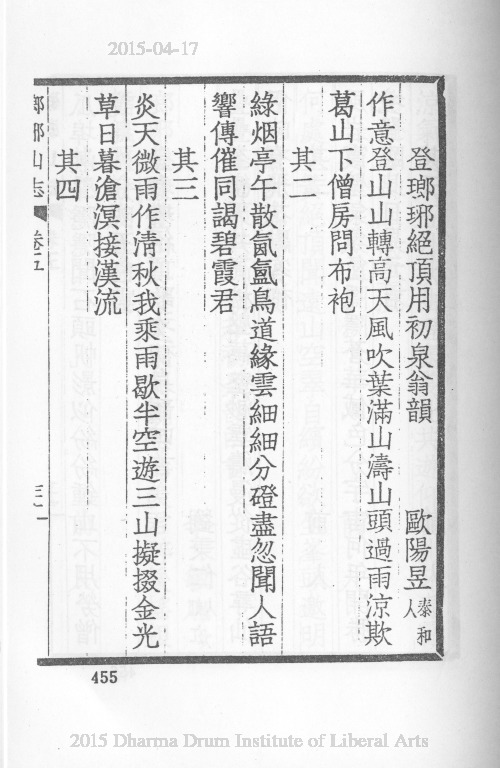 2015-04-17
登瑯琊絕頂用初泉翁韻 歐陽昱泰和人
作意登山山轉高天風吹葉滿山濤山頭過雨涼欺
葛山下僧房問布袍
其二
綠烟亭午散氤氳鳥道緣雲細細分磴盡忽聞人語
響傳催同謁碧霞君
其三
炎天微雨作清秋我乘雨歇半空遊三山擬掇金光
草日暮滄溟接漢流
其四
瑯琊山志 卷五
455
2015 Dharma Drum Institute of Liberal Arts